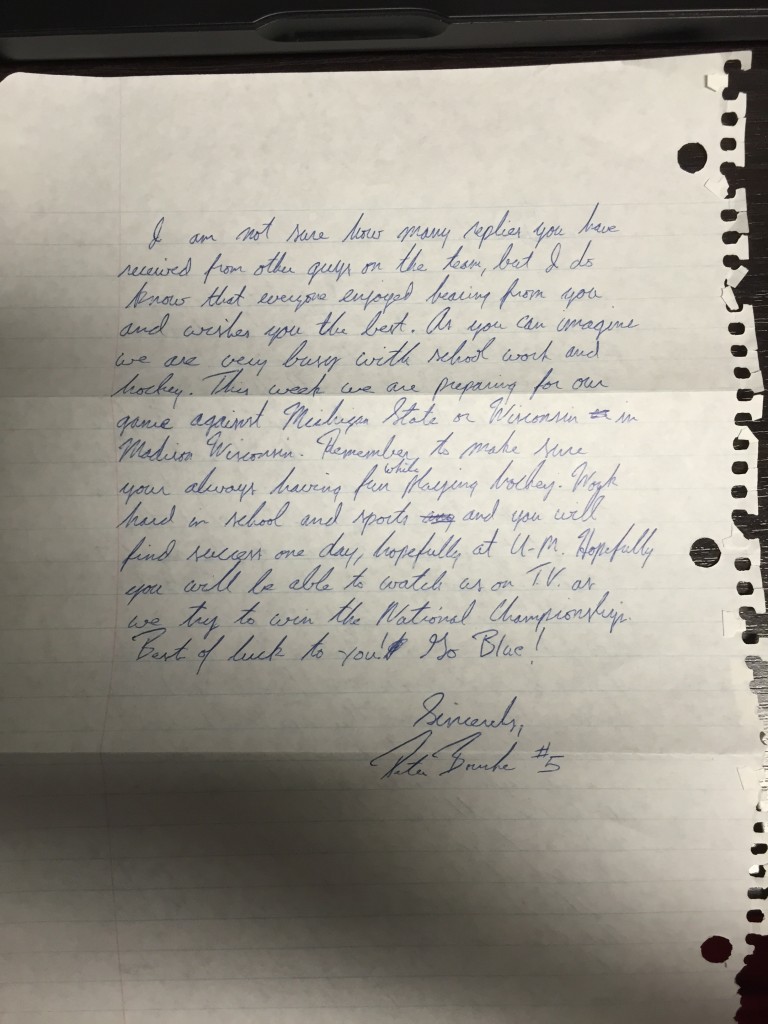 I am not sure how many replies you have
received from other guys on the team, but I do
know that everyone enjoyed hearing from you
and wishes you the best. As you can imagine
we are very busy with school work and
hockey. This week we are preparing for our
game against Michigan State or Wisconsin in
Madison Wisconsin. Remember to make sure
your always having fun while playing hockey. Work
hard in school and sports and you will
find success one day, hopefully at U-M. Hopefully
you will be able to watch us on T.V. as
we try to win the National Championship.
Best of luck to you! Go Blue!
Sincerely,
Peter Bourke #5